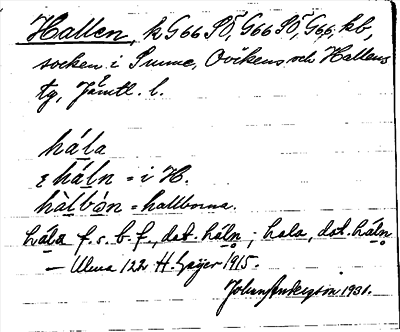 Hallen, k G66 SÖ, G66 SÖ, G66, kb,
socken i Sunne, Ovikens och Hallens
tg, Jämtl. l.
håla
ε håln = i H.
halbòn = hallborna.
håla f. s. b. f., dat. håln; hala, dat. håln
— Ulma 122 H. Geijer 1915.
1931.